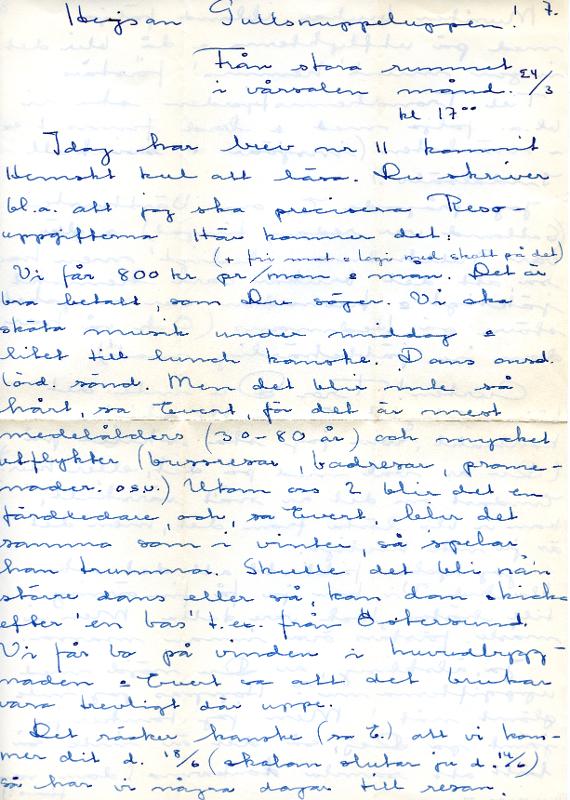 Hejsan Gullsnuppeluppen! 7.
Från stora rummet
i vårsalen månd. 24/3
kl 17⁰⁰
Idag har brev nr 11 kommit
Hemskt kul att läsa. Du skriver
bl.a. att jag ska precisera Reso-
uppgifterna Här kommer det:
(+ fri mat o logi med skatt på det)
Vi får 800 kr pr/man o mån. Det är
bra betalt, som Du säger. Vi ska
sköta musik under middag o
litet till lunch kanske. Dans onsd.
lörd. sönd. Men det blir inte så
hårt, sa Evert, för det är mest
medelålders (30-80 år) och mycket
utflykter (bussresor, badresor, prome-
nader. o.s.v.) Utom oss 2 blir det en
färdledare, och, sa Evert, blir det
samma som i vinter, så spelar
han trummor. Skulle det bli nån
större dans eller så, kan dom skicka
efter 'en bas' t.ex. från Östersund.
Vi får bo på vinden i huvudbygg-
naden o Evert sa att det brukar
vara trevligt där uppe.
Det räcker kanske (sa E.) att vi kom-
mer dit d. 18/6 (skolan slutar ju d. 14/6)
så har vi några dagar till resan.